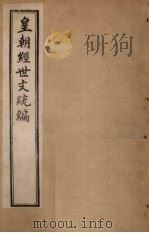 皇朝經世文統編